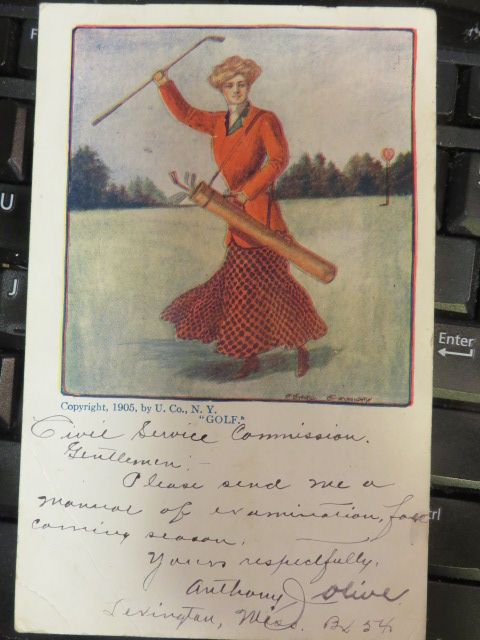 Copyright, 1905, by U. Co., N. Y.
"GOLF."
Civil Service Commission.
Gentlemen:-
Please send me a
manual of examination, for
coming season.
Yours respectfully,
Anthony J Olive.
Lexington, Miss. Bx
U
J
Enter
trl
F